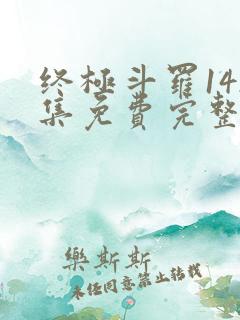 终極斗羅14
集免費完整
樂斯斯
未经同意禁止转载